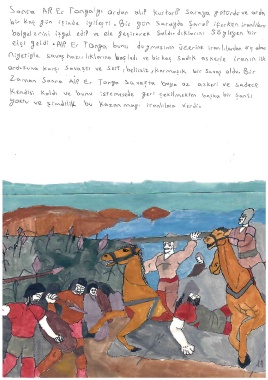 Sonra Alp Er Tonga'yı ordan alıp kurtarıp Saraya götürdü ve sonra
bir kaç gün içinde iyileşti. Bir gün sarayda şarap içerken iranlıların
bölgelerini işgal edip ve ele geçirerek saldırdıklarını söyleyen bir
elçi geldi. Alp Er Tonga bunu duymasının üzerine iranlılardan öç alma
niyetiyle savaş hazırlıklarına başladı ve birkaç sadık askerle iranın
ordusuna karşı savaştı ve sert, belirsiz, bir savaş oldu. Bir
Zaman Sonra Alp Er Tonga savaşta baya az askeri ve sadece
kendisi kaldı ve bunu istemesede geri çekilmekten başka bir şansı
yoktu ve şimdilik bu kazanmayı iranlılara verdi.